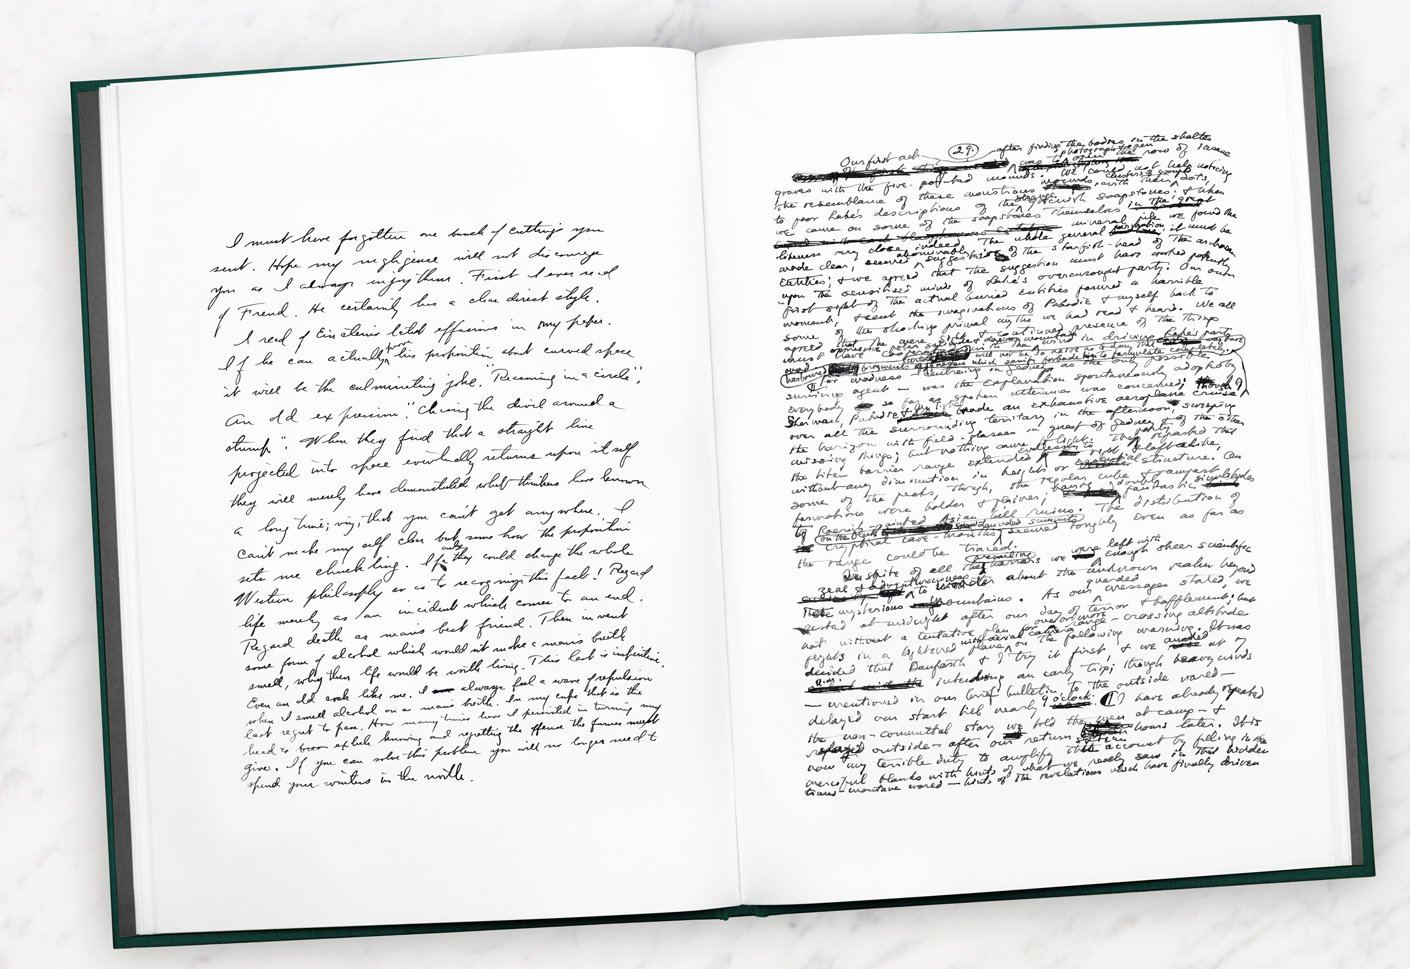 I must have forgotten one bunch of cuttings you
sent. Hope my negligence will not discourage
you as I always enjoy them. First I ever read
of Freud. He certainly has a clear direct style.
I read of Einstein's latest effusions in my paper.
If he can actually prove his proposition about curved space
it will be the culminating joke. "Reasoning in a circle",
An old expression. "Chasing the devil around a
stump". When they find that a straight line
projected into space eventually returns upon itself
they will merely have demonstrated what thinkers have known
a long time; viz; that you can't get anywhere. I
can't make my self clear but some how the proposition
sets me chuckling. If only they could change the whole
Western philosophy so as to recognize this fact! Regard
life merely as an incident which comes to an end.
Regard death as man's best friend. Then invent
some form of alcohol which would not make a man's breath
smell, why then life would be worth living. This last is imperative.
Even an old soak like me. I always feel a wave of repulsion
when I smell alcohol on a man's breath. In my cups that is the
last regret to pass. How many times have I persisted in turning my
head to exhale knowing and regretting the offense the fumes might
give. If you can solve this problem you will no longer need to
spend your winters in the north.
29.
Our first act after finding the bodies in the shelter
was to photograph & open the row of insane
graves with the five-pointed mounds. We could not help noticing
the resemblance of these monstrous mounds, with their clusters of grouped dots,
to poor Lake's descriptions of the strange greenish soapstones; & when
we came on some of the soapstones themselves in the great
mineral pile we found the
likeness very close indeed. The whole general formation, it must be
made clear, seemed abominably suggestive of the starfish-head of the archaean
entities; & we agreed that the suggestion must have worked potently
upon the sensitised minds of Lake's overwrought party. Our own
first sight of the actual buried entities formed a horrible
moment, & sent the imaginations of Pabodie & myself back to
some of the shocking primal myths we had read & heard. We all
agreed that the mere sight & continued presence of the things
must have coöperated with the oppressive polar solitude & daemon mountain wind in driving Lake's party
mad
for madness centreing in Gedney as the only possible
surviving agent - was the explanation spontaneously adopted by
everybody so far as spoken utterance was concerned; though
Sherman, Pabodie & McTighe made an exhaustive aeroplane cruise
over all the surrounding territory in the afternoon, sweeping
the horizon with field-glasses in quest of Gedney & of the
missing things; but nothing came to light. The party reported that
the titan barrier range extended endlessly to right & left alike,
without any diminution in height or essential structure. On
some of the peaks, though, the regular cube & rampart
formations were bolder & plainer; having doubly fantastic similitudes
to Roerich-painted Asian hill ruins. The distribution of
cryptical cave-mouths on the black snow-denuded summits seemed roughly even as far as
the range could be traced.
In spite of all the prevailing horrors we were left with
enough sheer scientific
zeal & adventurousness to wonder about the unknown realm beyond
those mysterious mountains. As our guarded messages stated, we
rested at midnight after our day of terror & bafflement; but
not without a tentative plan for one or more range-crossing altitude
flights in a lightened plane with aerial camera the following morning. It was
decided that Danforth & I try it first, & we awaked at 7
a.m. intending an early trip; though heavy winds
- mentioned in our brief bulletin to the outside world -
delayed our start till nearly 9 o'clock.
I have already repeated
the non-committal story we told the men at camp - &
relayed outside - after our return 16 hours later. It is
now my terrible duty to amplify this account by filling in the
merciful blanks with hints of what we really saw in that hidden
trans-montane world - hints of the revelations which have finally driven